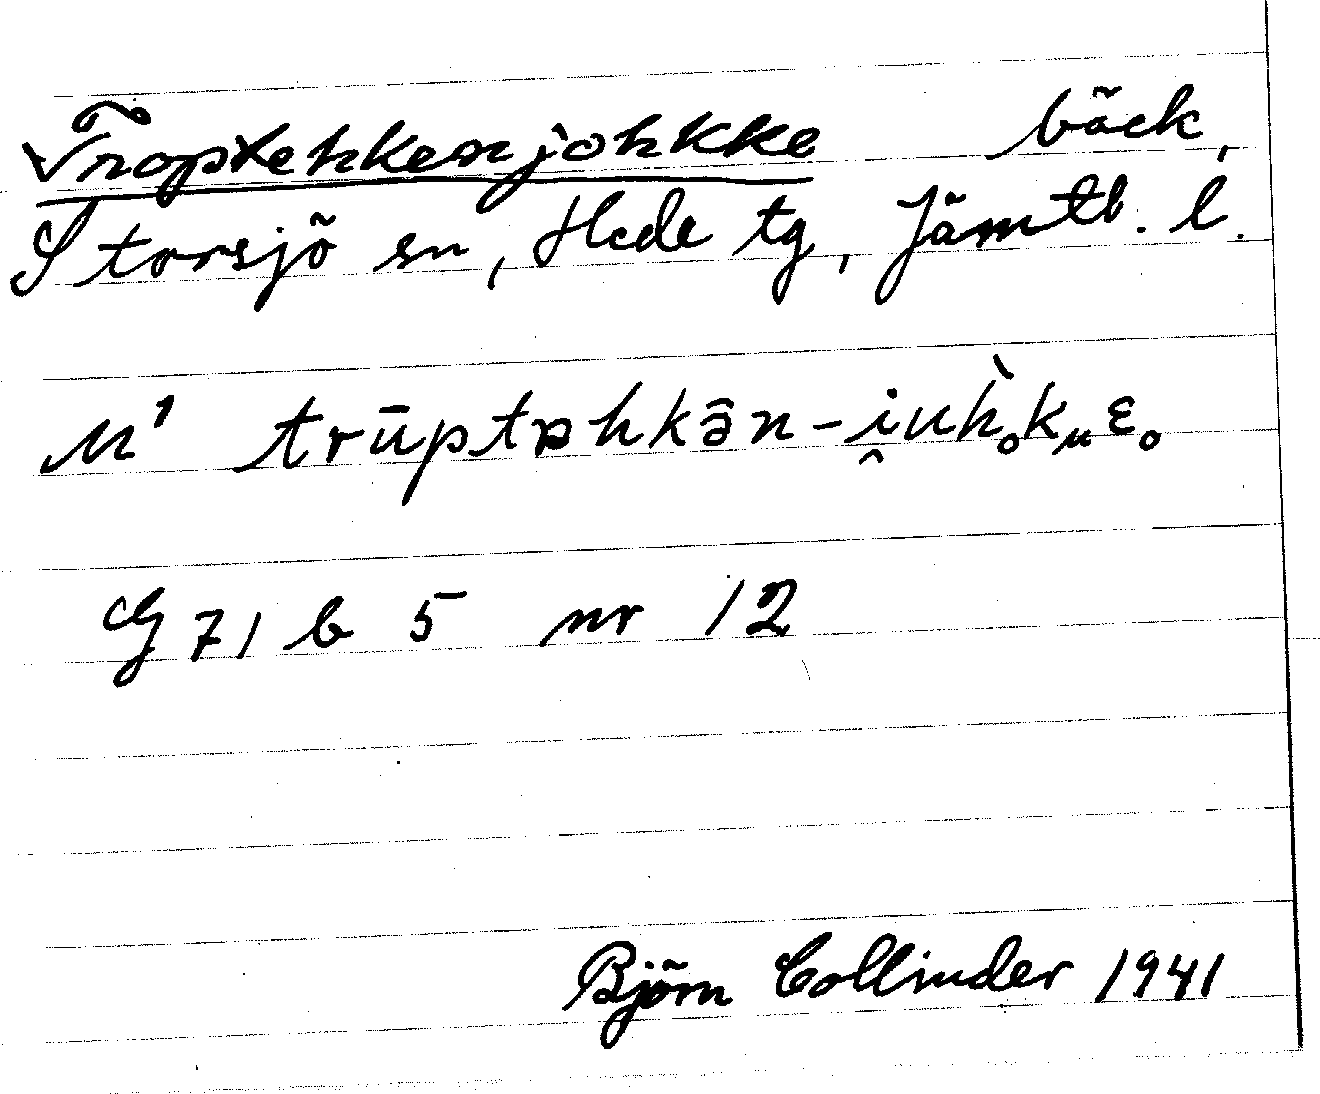 Troptehkenjohkke bäck,
Storsjö sn, Hede tg, Jämtl. l.
M' trūptəhkə̄n-i̭uh̀ₒkᵤɛₒ
G 71 b 5 nr 12
Björn Collinder 1941